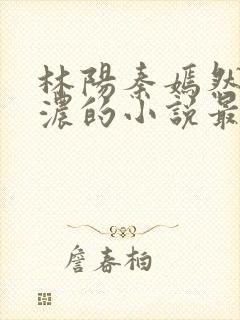 林陽秦嫣然
濃的小說最
詹春柏